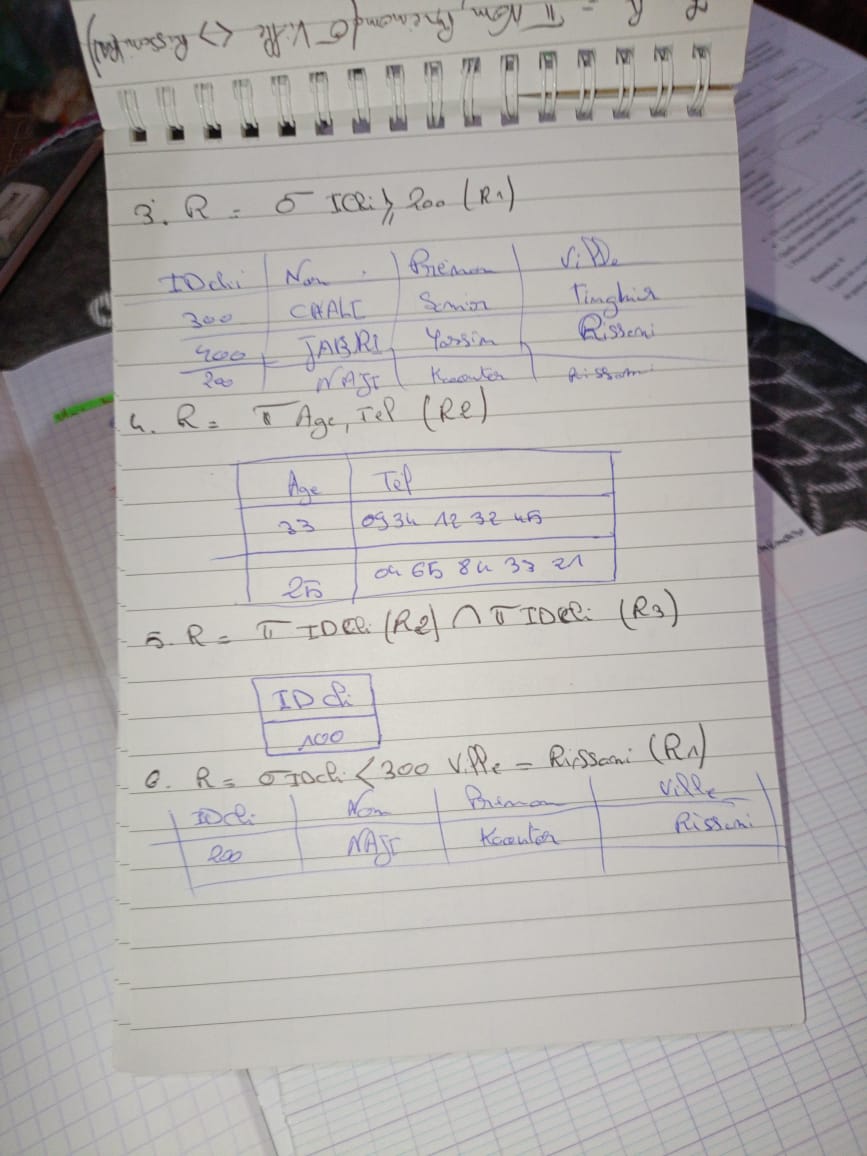 R = π Nom, Prénom (σ Ville <> Rissani (R1)
3. R = σ IDcli ≥ 200 (R1)
IDcli Nom Prénom Ville
300 CHALI Senior Tinghir
400 JABRI Yassim Rissani
200 NAJI Kaoutar Rissani
4. R = π Age, Tel (R2)
Age Tel
33 0934 12 32 45
25 04 65 84 33 21
5. R = π IDcli (R2) ∩ π IDcli (R3)
IDcli
100
6. R = σ IDcli < 300 Ville = Rissani (R1)
IDcli Nom Prénom Ville
200 NAJI Kaoutar Rissani